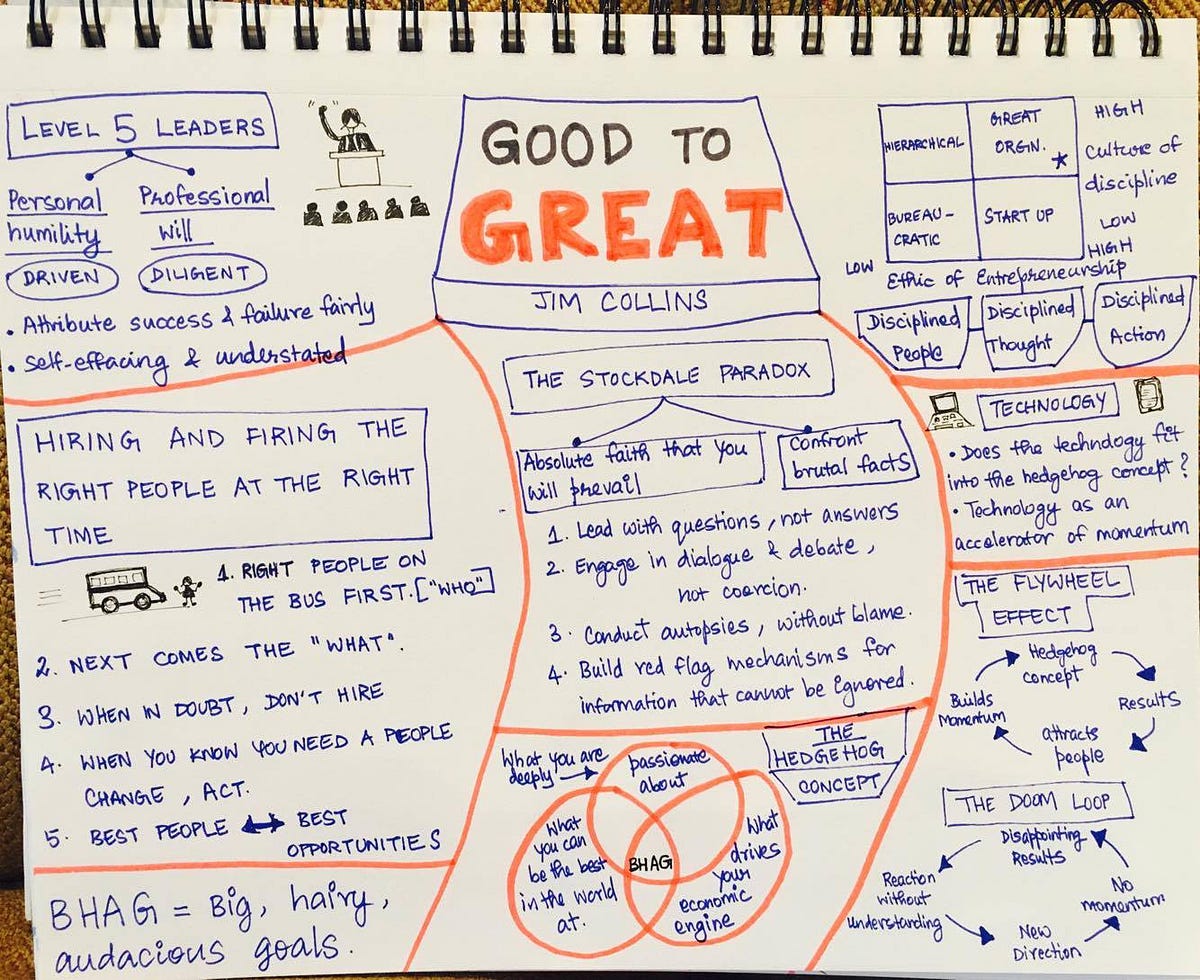 GOOD TO
GREAT
JIM COLLINS
LEVEL 5 LEADERS
Personal
humility
Professional
will
DRIVEN
DILIGENT
• Attribute success & failure fairly
• Self-effacing & understated
HIRING AND FIRING THE
RIGHT PEOPLE AT THE RIGHT
TIME
1. RIGHT PEOPLE ON
THE BUS FIRST. ["WHO"]
2. NEXT COMES THE "WHAT".
3. WHEN IN DOUBT, DON'T HIRE
4. WHEN YOU KNOW YOU NEED A PEOPLE
CHANGE, ACT.
5. BEST PEOPLE ↔ BEST
OPPORTUNITIES
BHAG = Big, hairy,
audacious goals.
THE STOCKDALE PARADOX
Absolute faith that you
will prevail
Confront
brutal facts
1. Lead with questions, not answers
2. Engage in dialogue & debate,
not coercion.
3. Conduct autopsies, without blame.
4. Build red flag mechanisms for
information that cannot be ignored.
THE
HEDGEHOG
CONCEPT
What you are
deeply →
passionate
about
What
you can
be the best
in the world
at.
BHAG
What
drives
your
economic
engine
HIERARCHICAL
GREAT
ORGN.
BUREAU-
CRATIC
START UP
HIGH
Culture of
discipline
LOW
HIGH
LOW
Ethic of Entrepreneurship
Disciplined
People
Disciplined
Thought
Disciplined
Action
TECHNOLOGY
• Does the technology fit
into the hedgehog concept?
• Technology as an
accelerator of momentum
THE FLYWHEEL
EFFECT
Hedgehog
concept
Results
attracts
people
Builds
Momentum
THE DOOM LOOP
Disappointing
Results
Reaction
without
understanding
New
Direction
No
momentum